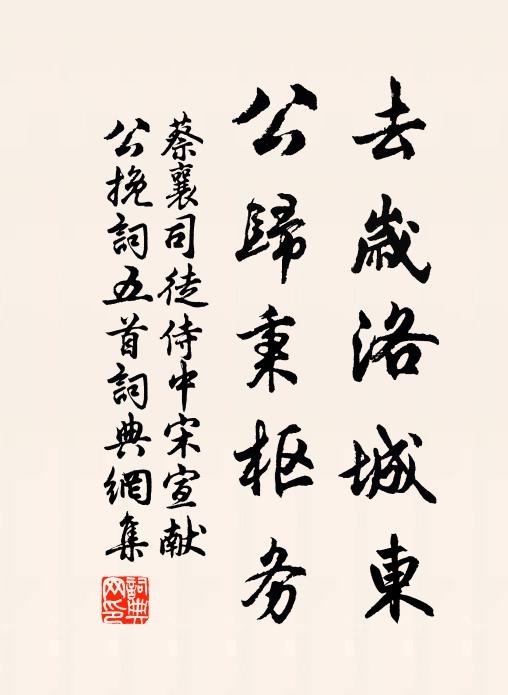 去歲洛城東
公歸秉枢务
蔡襄司徒侍中宋宣献
公挽詞五首詞典網集
詞典网印